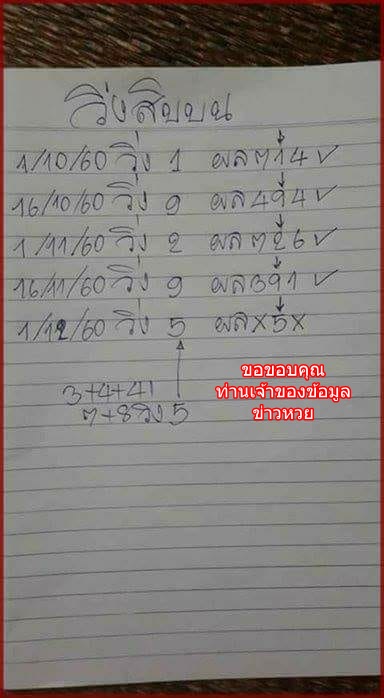 วิ่งสิบบน
1/10/60 วิ่ง 1 ผล714 ✓
16/10/60 วิ่ง 9 ผล494 ✓
1/11/60 วิ่ง 2 ผล726 ✓
16/11/60 วิ่ง 9 ผล391 ✓
1/12/60 วิ่ง 5 ผลX5X
3+4+41
7+8วิ่ง5
ขอขอบคุณ
ท่านเจ้าของข้อมูล
ข่าวหวย